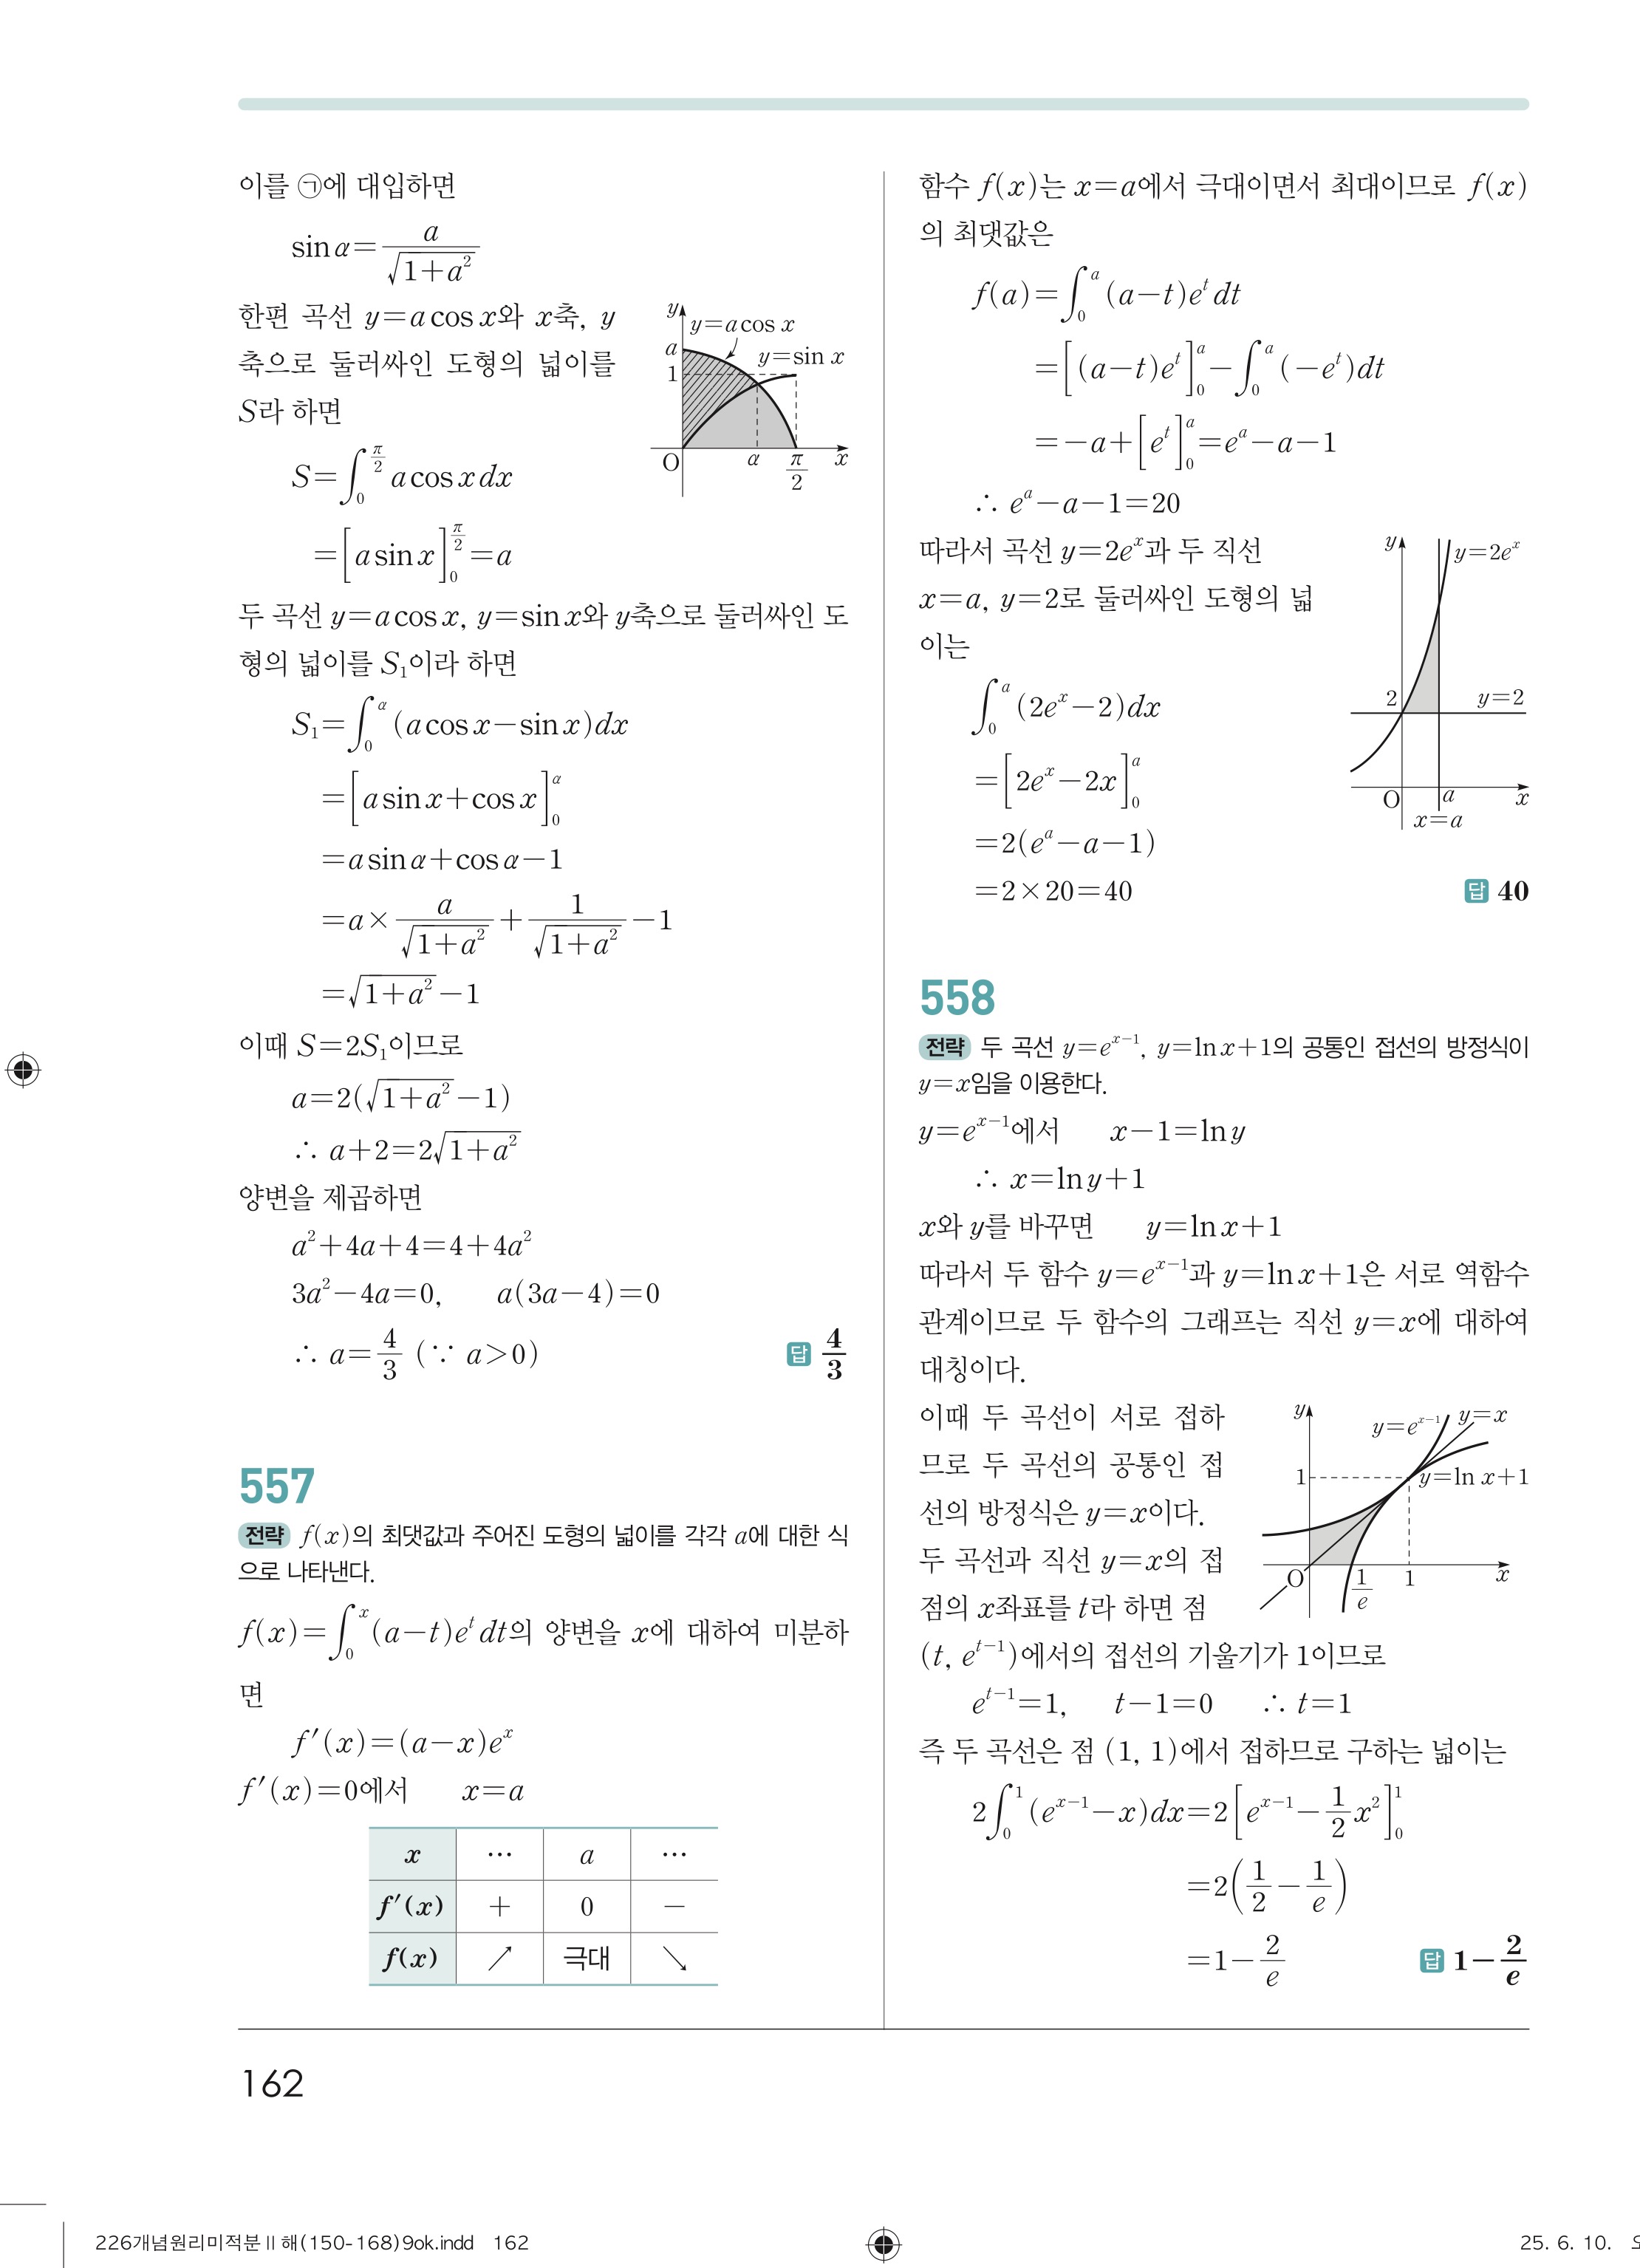 이를 ㉠에 대입하면
sin α = a/√(1+a²)
한편 곡선 y=a cos x와 x축, y
축으로 둘러싸인 도형의 넓이를
S라 하면
y
y=a cos x
a
y=sin x
1
O α π/2 x
S=∫₀^(π/2) a cos x dx
=[a sin x]₀^(π/2)=a
두 곡선 y=a cos x, y=sin x와 y축으로 둘러싸인 도
형의 넓이를 S₁이라 하면
S₁=∫₀^α (a cos x−sin x)dx
=[a sin x+cos x]₀^α
=a sin α+cos α−1
=a× a/√(1+a²) + 1/√(1+a²) −1
=√(1+a²)−1
이때 S=2S₁이므로
a=2(√(1+a²)−1)
∴ a+2=2√(1+a²)
양변을 제곱하면
a²+4a+4=4+4a²
3a²−4a=0, a(3a−4)=0
∴ a=4/3 (∵ a>0) 답 4/3
557
전략 f(x)의 최댓값과 주어진 도형의 넓이를 각각 a에 대한 식
으로 나타낸다.
f(x)=∫₀^x (a−t)e^t dt의 양변을 x에 대하여 미분하
면
f′(x)=(a−x)e^x
f′(x)=0에서 x=a
x … a …
f′(x) + 0 −
f(x) ↗ 극대 ↘
함수 f(x)는 x=a에서 극대이면서 최대이므로 f(x)
의 최댓값은
f(a)=∫₀^a (a−t)e^t dt
=[(a−t)e^t]₀^a−∫₀^a (−e^t)dt
=−a+[e^t]₀^a=e^a−a−1
∴ e^a−a−1=20
따라서 곡선 y=2e^x과 두 직선
x=a, y=2로 둘러싸인 도형의 넓
이는
y
y=2e^x
2 y=2
O a x
x=a
∫₀^a (2e^x−2)dx
=[2e^x−2x]₀^a
=2(e^a−a−1)
=2×20=40 답 40
558
전략 두 곡선 y=e^(x−1), y=ln x+1의 공통인 접선의 방정식이
y=x임을 이용한다.
y=e^(x−1)에서 x−1=ln y
∴ x=ln y+1
x와 y를 바꾸면 y=ln x+1
따라서 두 함수 y=e^(x−1)과 y=ln x+1은 서로 역함수
관계이므로 두 함수의 그래프는 직선 y=x에 대하여
대칭이다.
이때 두 곡선이 서로 접하
므로 두 곡선의 공통인 접
선의 방정식은 y=x이다.
두 곡선과 직선 y=x의 접
점의 x좌표를 t라 하면 점
y
y=e^(x−1) y=x
1 y=ln x+1
O 1/e 1 x
(t, e^(t−1))에서의 접선의 기울기가 1이므로
e^(t−1)=1, t−1=0 ∴ t=1
즉 두 곡선은 점 (1, 1)에서 접하므로 구하는 넓이는
2∫₀¹ (e^(x−1)−x)dx=2[e^(x−1)−1/2 x²]₀¹
=2(1/2−1/e)
=1−2/e 답 1−2/e
162
226개념원리미적분Ⅱ해(150-168)9ok.indd 162
25. 6. 10.